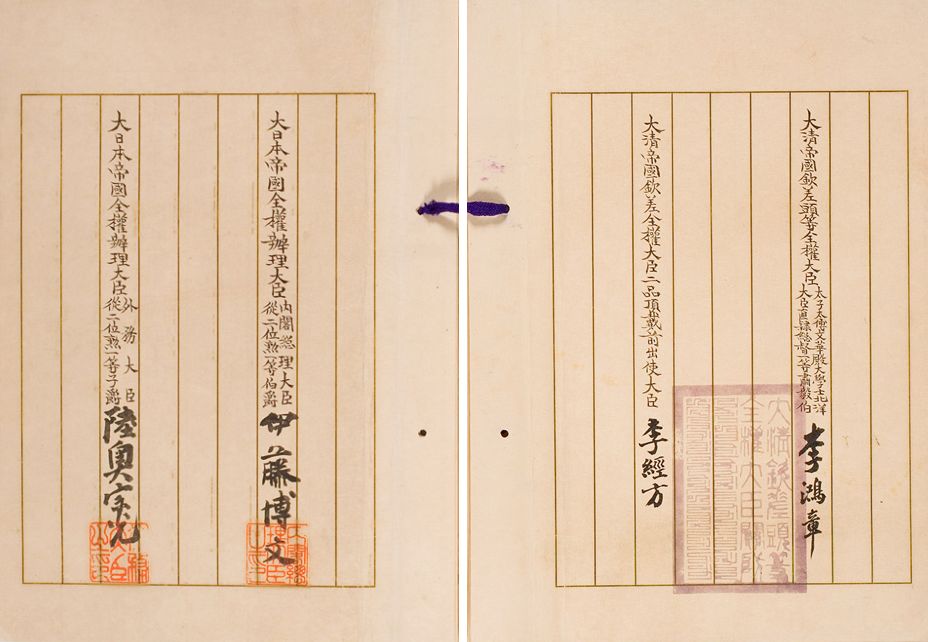 大清帝國欽差頭等全權大臣
太子太傅文華殿大學士北洋
大臣直隸總督一等肅毅伯
李鴻章
大清欽差頭等
全權大臣關防
大清帝國欽差全權大臣二品頂戴前出使大臣
李經方
大日本帝國全權辦理大臣
内閣總理大臣
從二位勲一等伯爵
伊藤博文
大日本帝國全權辦理大臣
外務大臣
從二位勲一等子爵
陸奧宗光